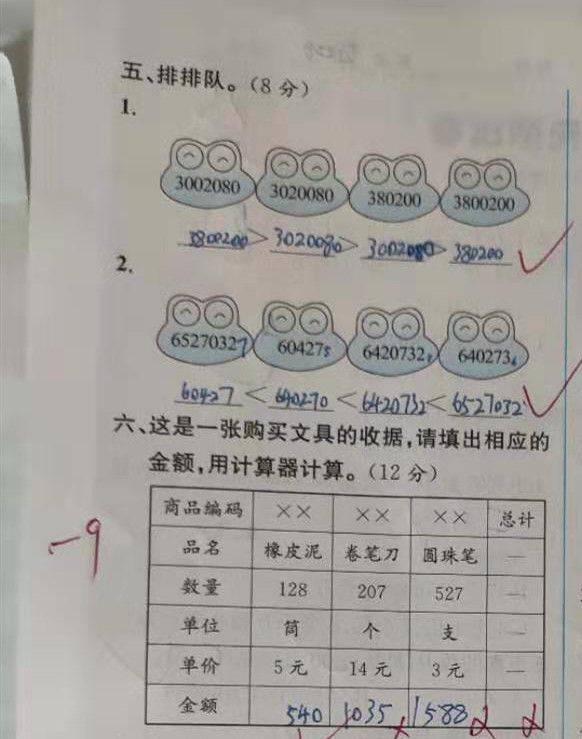 五、排排队。(8分)
1.
3002080 3020080 380200 3800200
3800200 > 3020080 > 3002080 > 380200
2.
6527032 60427 6420732 640273
60427 < 640270 < 6420732 < 6527032
六、这是一张购买文具的收据,请填出相应的
金额,用计算器计算。(12分)
商品编码 ×× ×× ×× 总计
-9
品名 橡皮泥 卷笔刀 圆珠笔 —
数量 128 207 527 —
单位 筒 个 支 —
单价 5元 14元 3元 —
金额 540 1035 1588